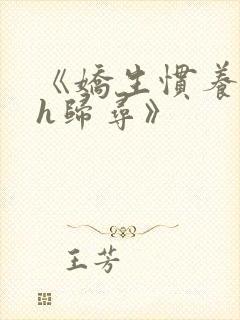 《嬌生慣養
h歸尋》
王芳